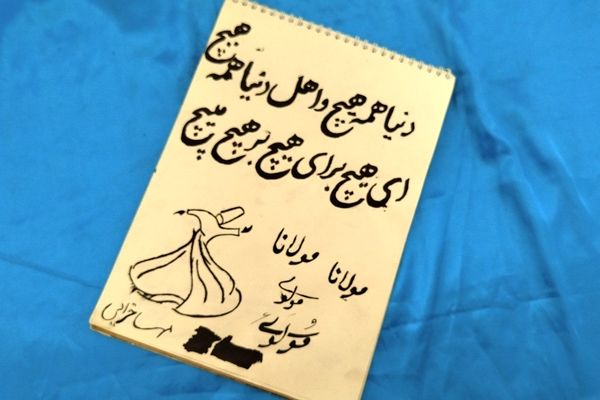 دنیا همه هیچ و اهل دنیا همه هیچ
ای هیچ برای هیچ بر هیچ مپیچ
مولانا مولانا
مولوی
مولوی